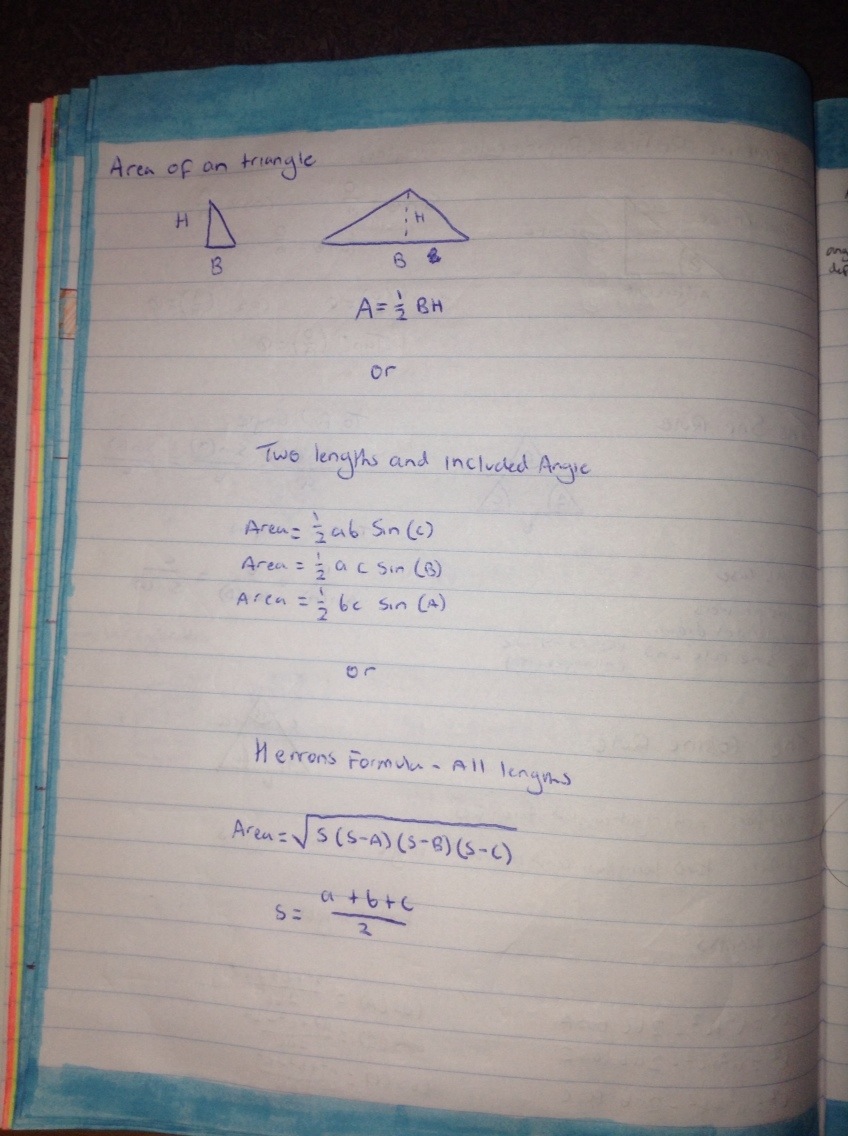 Area of an triangle
H
H
B
B
A = 1/2 BH
or
Two lengths and included Angle
Area = 1/2 ab Sin (C)
Area = 1/2 a c sin (B)
Area = 1/2 bc sin (A)
or
Herrons Formula - All lengths
Area = √S(S-A)(S-B)(S-C)
S = a+b+c/2